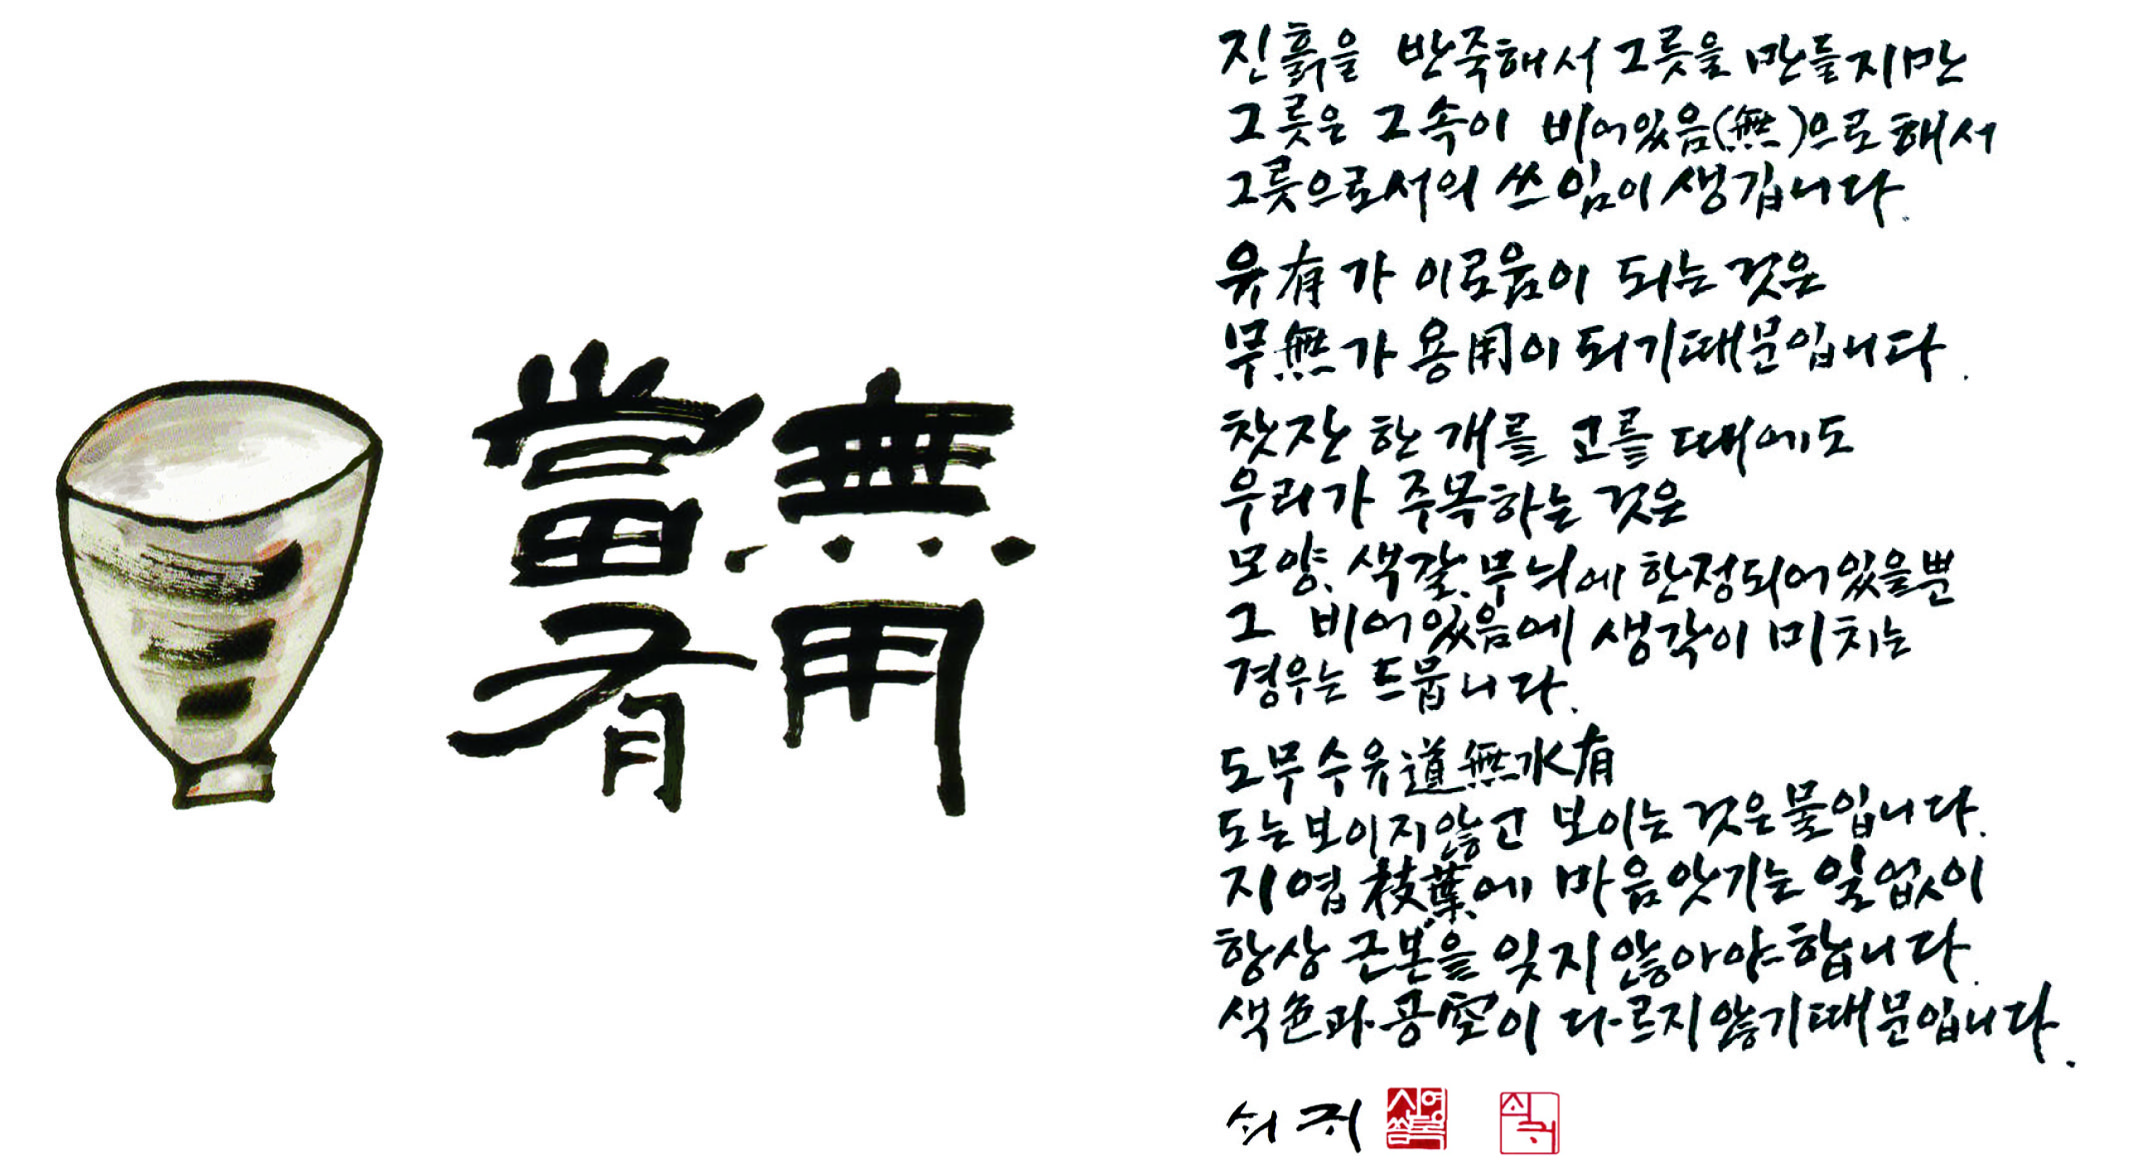 當無
有用
진흙을 반죽해서 그릇을 만들지만
그릇은 그 속이 비어있음(無)으로 해서
그릇으로서의 쓰임이 생깁니다.
유有가 이로움이 되는 것은
무無가 용用이 되기 때문입니다.
찻잔 한 개를 고를 때에도
우리가 주목하는 것은
모양, 색깔, 무늬에 한정되어 있을 뿐
그 비어있음에 생각이 미치는
경우는 드뭅니다.
도무수유道無水有
도는 보이지 않고 보이는 것은 물입니다.
지엽枝葉에 마음 앗기는 일 없이
항상 근본을 잊지 않아야 합니다.
색色과 공空이 다르지 않기 때문입니다.
쇠귀
신영복
쇠귀